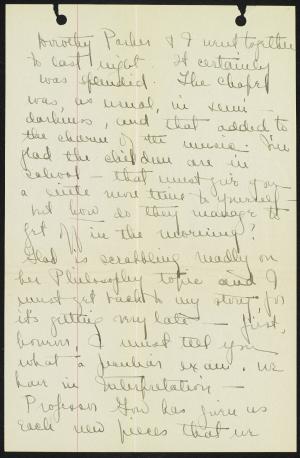 Dorothy Parker & I went together
to last night. It certainly
was splendid. The chapel
was, as usual, in semi-
darkness, and that added to
the charm of the music. I'm
glad the children are in
school - that must give you
a little more time to yourself -
but how do they manage to
get off in the morning?
Glad is scrabbling madly on
her Philosophy topic and I
must get back to my story, for
it's getting very late - first,
however, I must tell you
what a peculiar exam. we
have in Interpretation -
Professor Gow has given us
each new pieces that we